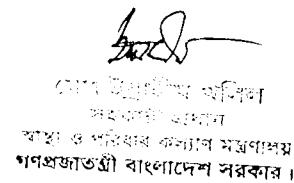 মোঃ খলিল
সহকারী প্রধান
স্বাস্থ্য ও পরিবার কল্যাণ মন্ত্রণালয়
গণপ্রজাতন্ত্রী বাংলাদেশ সরকার।